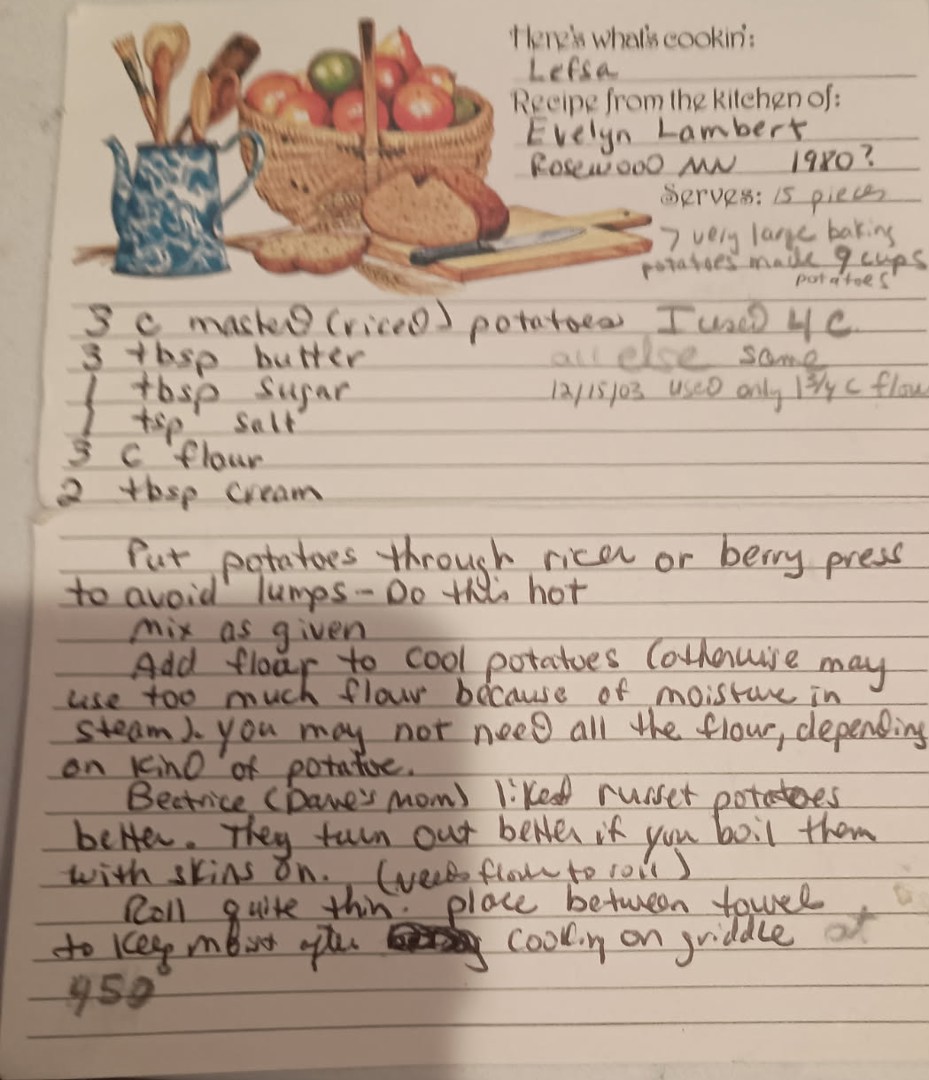 Here's what's cookin':
Lefsa
Recipe from the kitchen of:
Evelyn Lambert
Rosewood MN 1980?
Serves: 15 pieces
7 very large baking
potatoes made 9 cups
potatoes
3 c mashed (riced) potatoes I used 4 c.
3 tbsp butter all else same
1 tbsp sugar 12/15/03 used only 1 3/4 c flou
1 tsp salt
3 c flour
2 tbsp cream
Put potatoes through ricer or berry press
to avoid lumps - Do this hot
Mix as given
Add flour to cool potatoes (otherwise may
use too much flour because of moisture in
steam). You may not need all the flour, depending
on kind of potatoe.
Beatrice (Dave's Mom) liked russet potatoes
better. They turn out better if you boil them
with skins on. (need flour to roll)
Roll quite thin. place between towel
to keep moist after cooking on griddle at
450